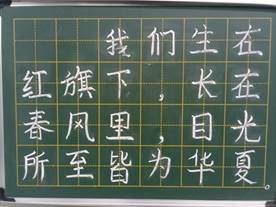 我们生在
红旗下，长在
春风里，目光
所至皆为华夏。